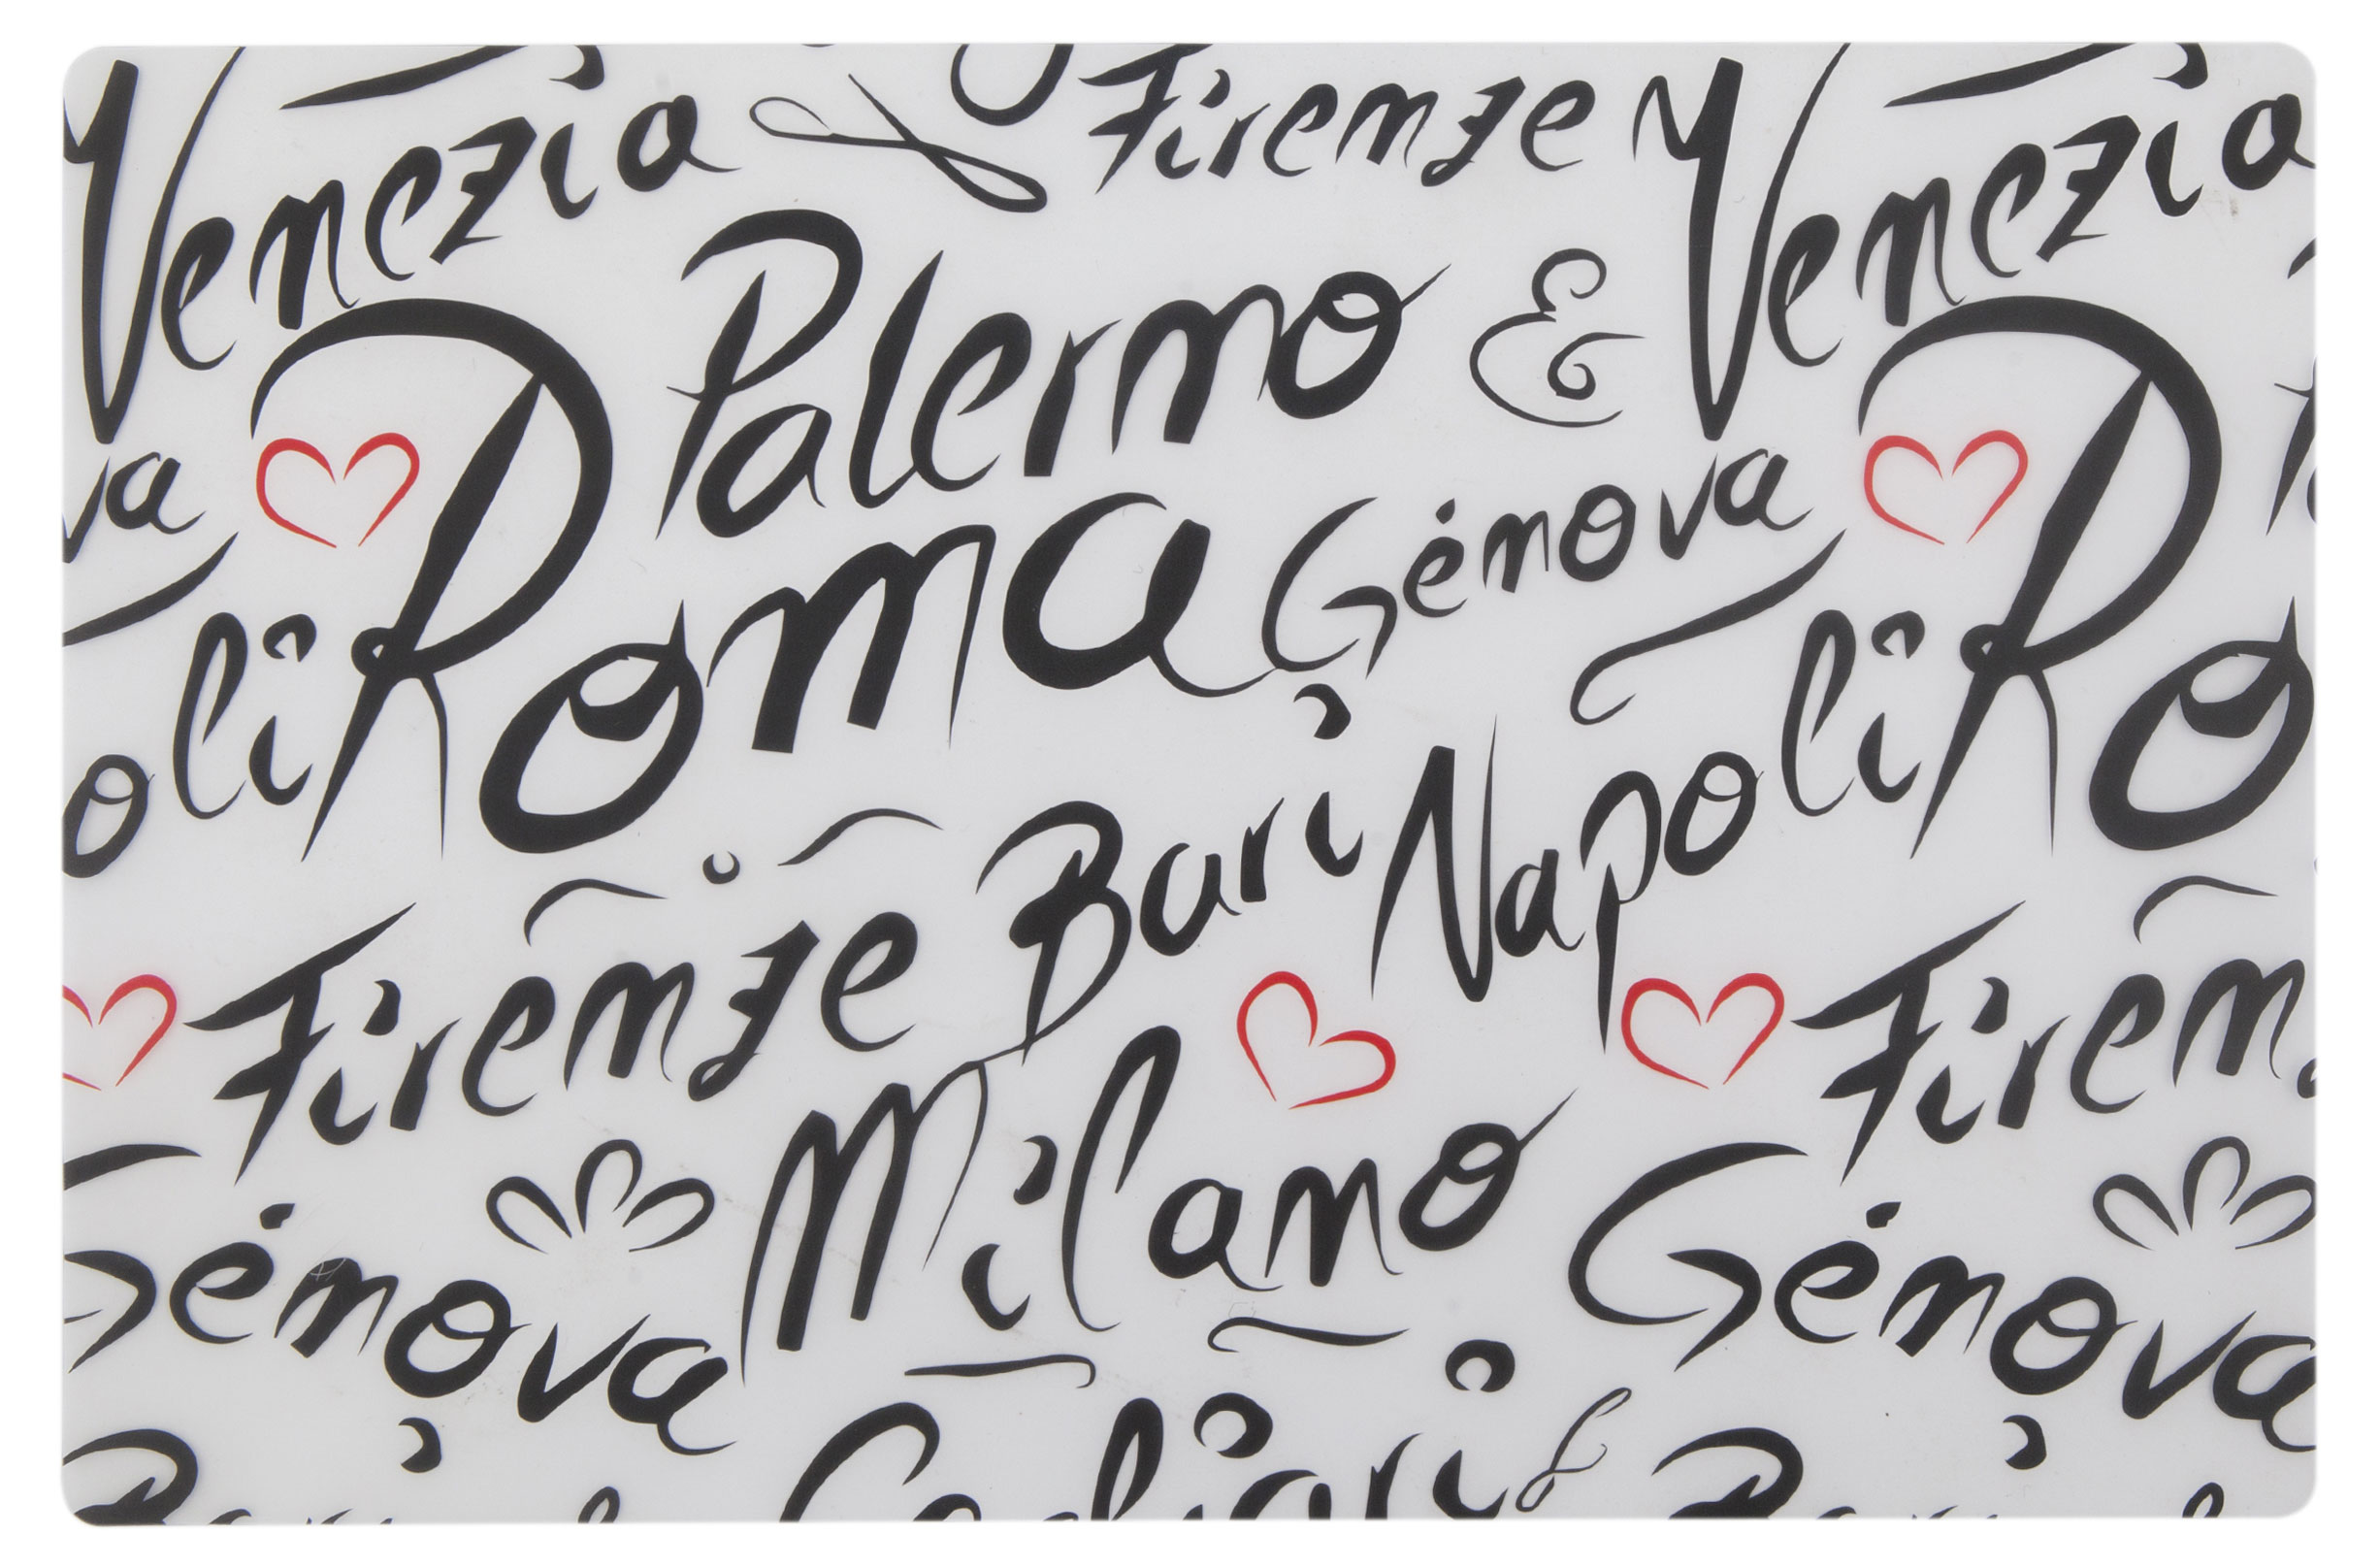 Venezia Firenze Venezia
Palermo &
va Roma Génova Ro
oli Bari Napoli
Firenze Milano Firen
Génova Génova
Cagliari